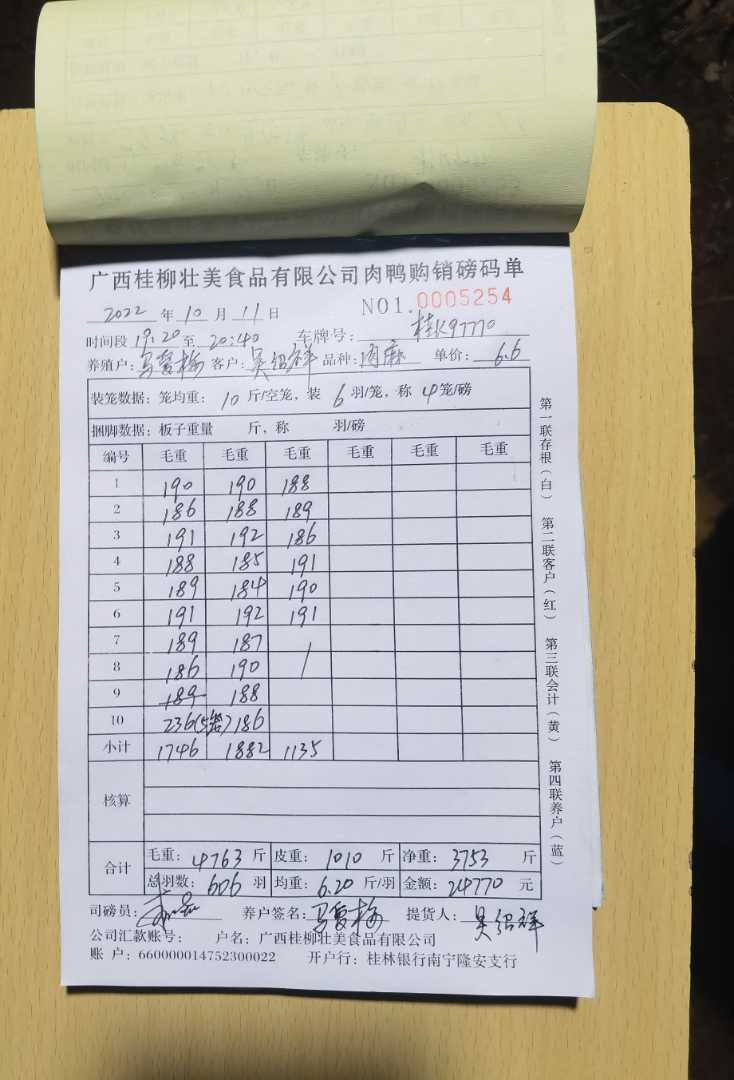 广西桂柳壮美食品有限公司肉鸭购销磅码单
2022 年 10 月 11 日 NO1. 0005254
时间段 19:20 至 20:40 车牌号: 桂K97770
养殖户: 马复梅 客户: 吴绍祥 品种: 肉麻 单价: 6.6
装笼数据: 笼均重: 10 斤/空笼, 装 6 羽/笼, 称 4 笼/磅
捆脚数据: 板子重量 斤, 称 羽/磅
编号 毛重 毛重 毛重 毛重 毛重 毛重
1 190 190 188
2 186 188 189
3 191 192 186
4 188 185 191
5 189 184 190
6 191 192 191
7 189 187
8 186 190
9 189 188
10 236(5笼) 186
小计 1746 1882 1135
核算
合计 毛重: 4763 斤 皮重: 1010 斤 净重: 3753 斤
总羽数: 606 羽 均重: 6.20 斤/羽 金额: 24770 元
司磅员: 养户签名: 马复梅 提货人: 吴绍祥
公司汇款账号: 户名: 广西桂柳壮美食品有限公司
账 户: 660000014752300022 开户行: 桂林银行南宁隆安支行
第一联存根(白) 第二联客户(红) 第三联会计(黄) 第四联养户(蓝)